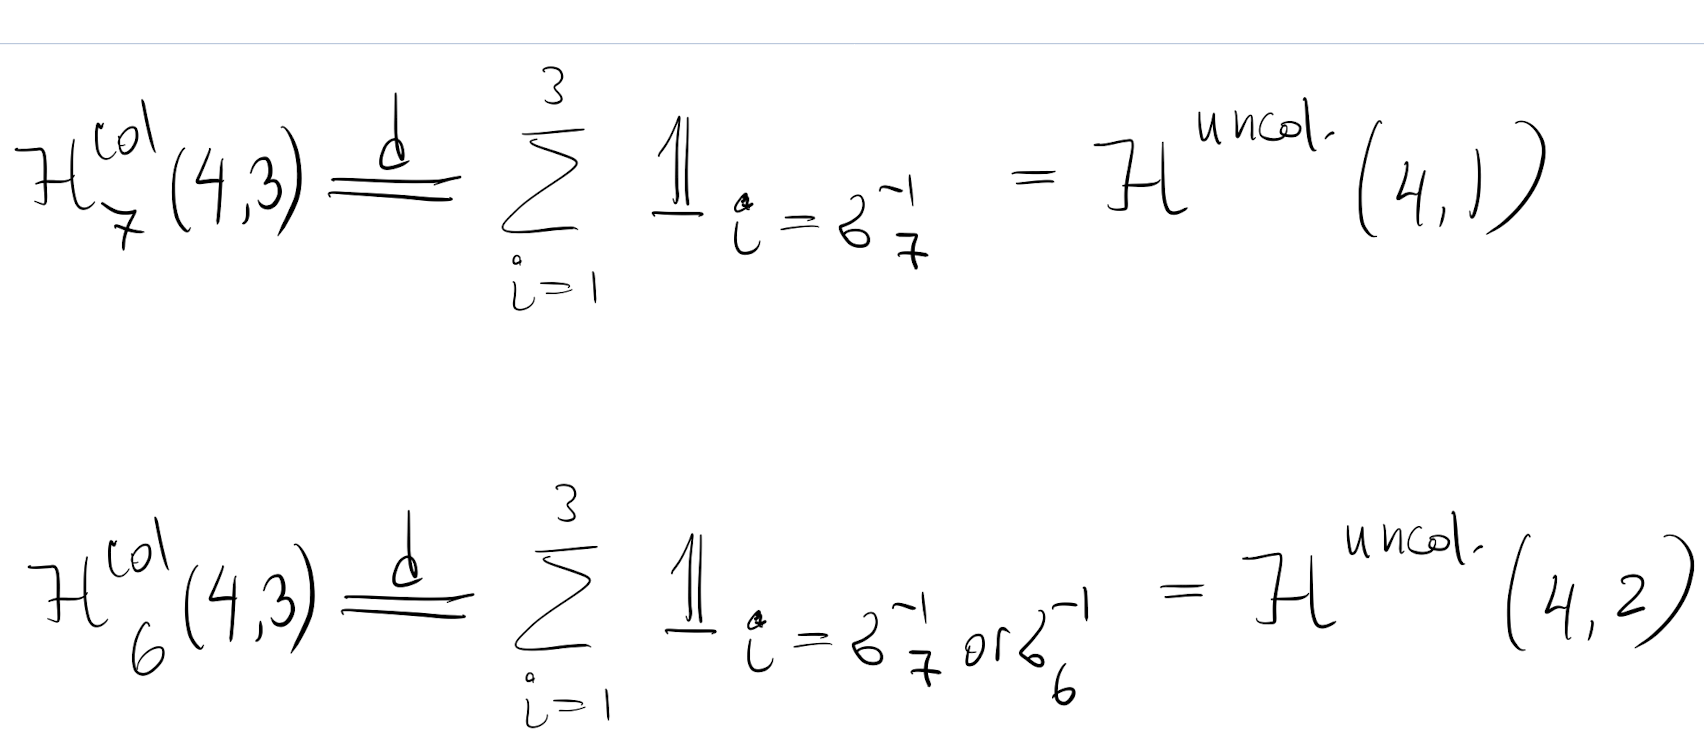 $\mathcal{H}^{col}_{7}(4,3) \overset{d}{=} \sum_{i=1}^{3} \mathbb{1}_{i = \sigma^{-1}_{7}} = \mathcal{H}^{uncol.}(4,1)$
$\mathcal{H}^{col}_{6}(4,3) \overset{d}{=} \sum_{i=1}^{3} \mathbb{1}_{i = \sigma^{-1}_{7} or \sigma^{-1}_{6}} = \mathcal{H}^{uncol.}(4,2)$